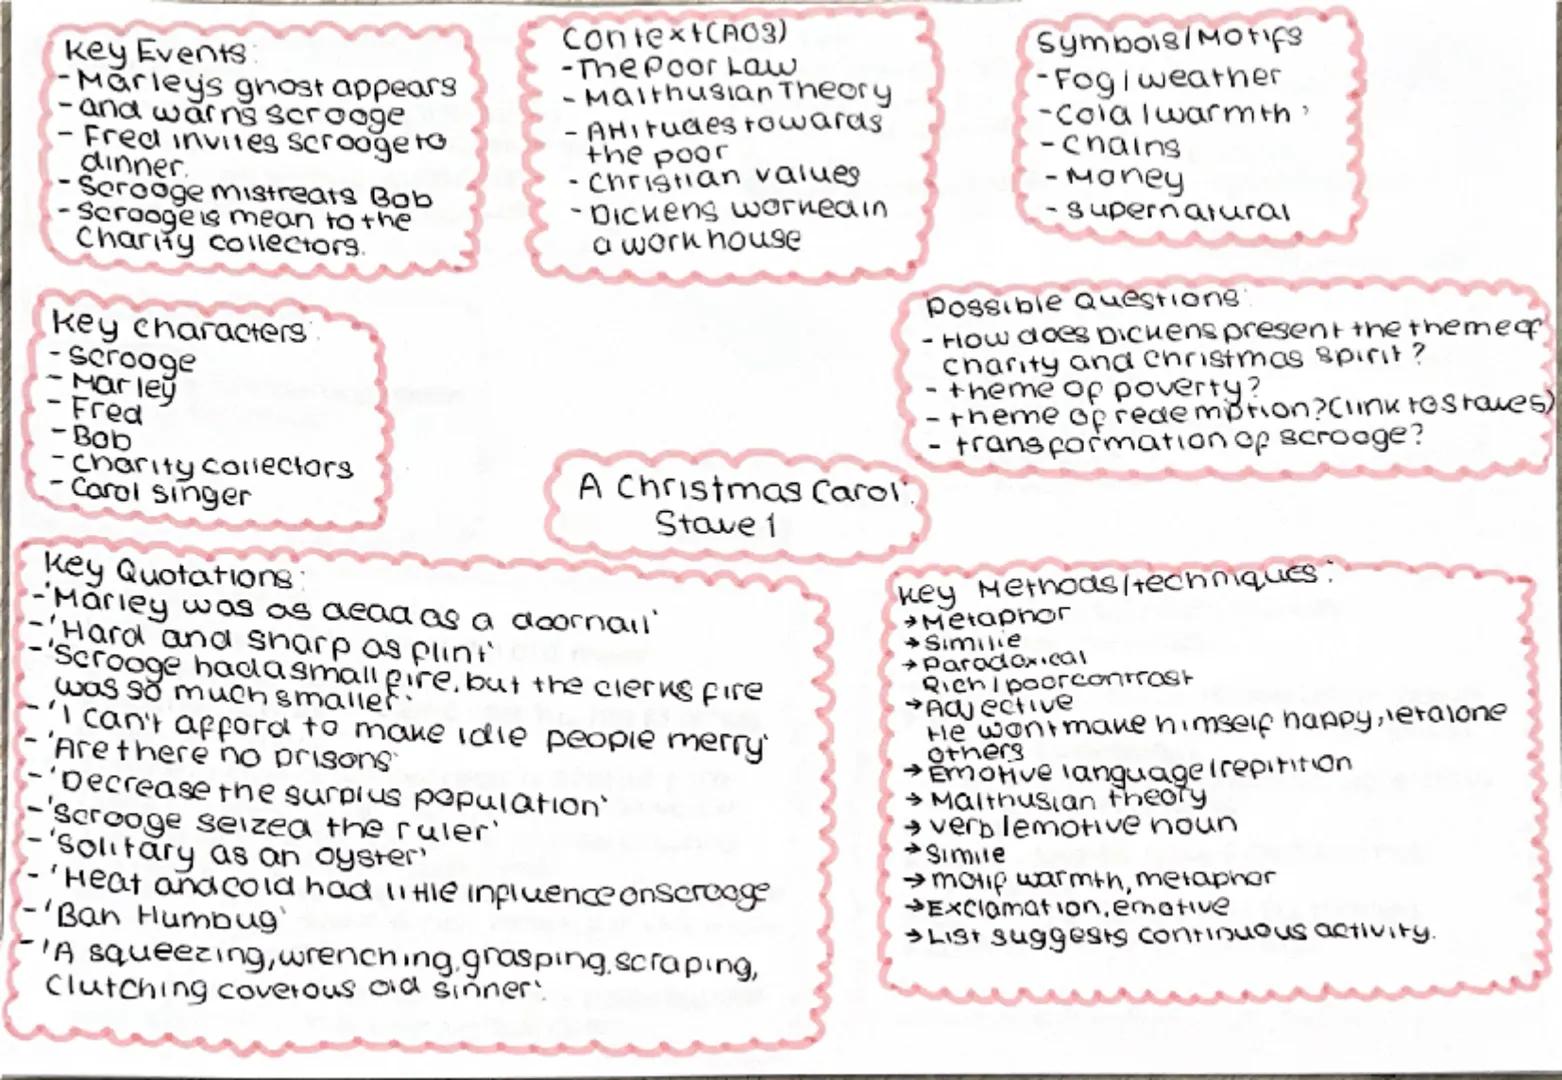 Key Events:
- Marley's ghost appears
- and warns scrooge
- Fred invites scrooge to
dinner.
- Scrooge mistreats Bob
- Scrooge is mean to the
Charity collectors.
Context (AO3)
- The Poor Law
- Malthusian Theory
- Attitudes towards
the poor
- Christian values
- Dickens worked in
a work house
Symbols/Motifs
- Fog / weather
- Cold / warmth
- Chains
- Money
- supernatural
Key characters:
- Scrooge
- Marley
- Fred
- Bob
- charity collectors
- Carol singer
Possible questions:
- How does Dickens present the theme of
charity and Christmas spirit?
- theme of poverty?
- theme of redemption? (link to staves)
- transformation of scrooge?
A Christmas Carol:
Stave 1
Key Quotations:
- 'Marley was as dead as a doornail'
- 'Hard and sharp as flint'
- 'Scrooge had a small fire, but the clerks fire
was so much smaller.'
- 'I can't afford to make idle people merry'
- 'Are there no prisons'
- 'Decrease the surplus population'
- 'Scrooge seized the ruler'
- 'Solitary as an oyster'
- 'Heat and cold had little influence on scrooge
- 'Bah Humbug'
- 'A squeezing, wrenching, grasping, scraping,
Clutching covetous old sinner'
Key Methods/techniques:
→ Metaphor
→ Similie
→ Paradoxical
Rich / poor contrast
→ Adjective
He wont make himself happy, let alone
others
→ Emotive language / repitition
→ Malthusian theory
→ verb / emotive noun
→ Simile
→ motif warmth, metaphor
→ Exclamation, emotive
→ List suggests continuous activity.